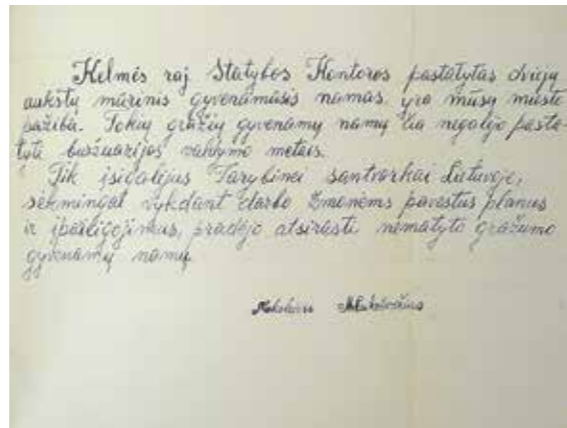 Kelmės raj. Statybos Kontoros pastatytas dviejų
aukštų mūrinis gyvenamasis namas, yra mūsų miesto
pažiba. Tokių gražių gyvenamų namų čia negalėjo pasta-
tyti buržuazijos valdymo metais.
Tik įsigalėjus Tarybinei santvarkai Lietuvoje,
sėkmingai vykdant darbo žmonėms pavestus planus
ir įpareigojimus, pradėjo atsirasti nematyto gražumo
gyvenamų namų